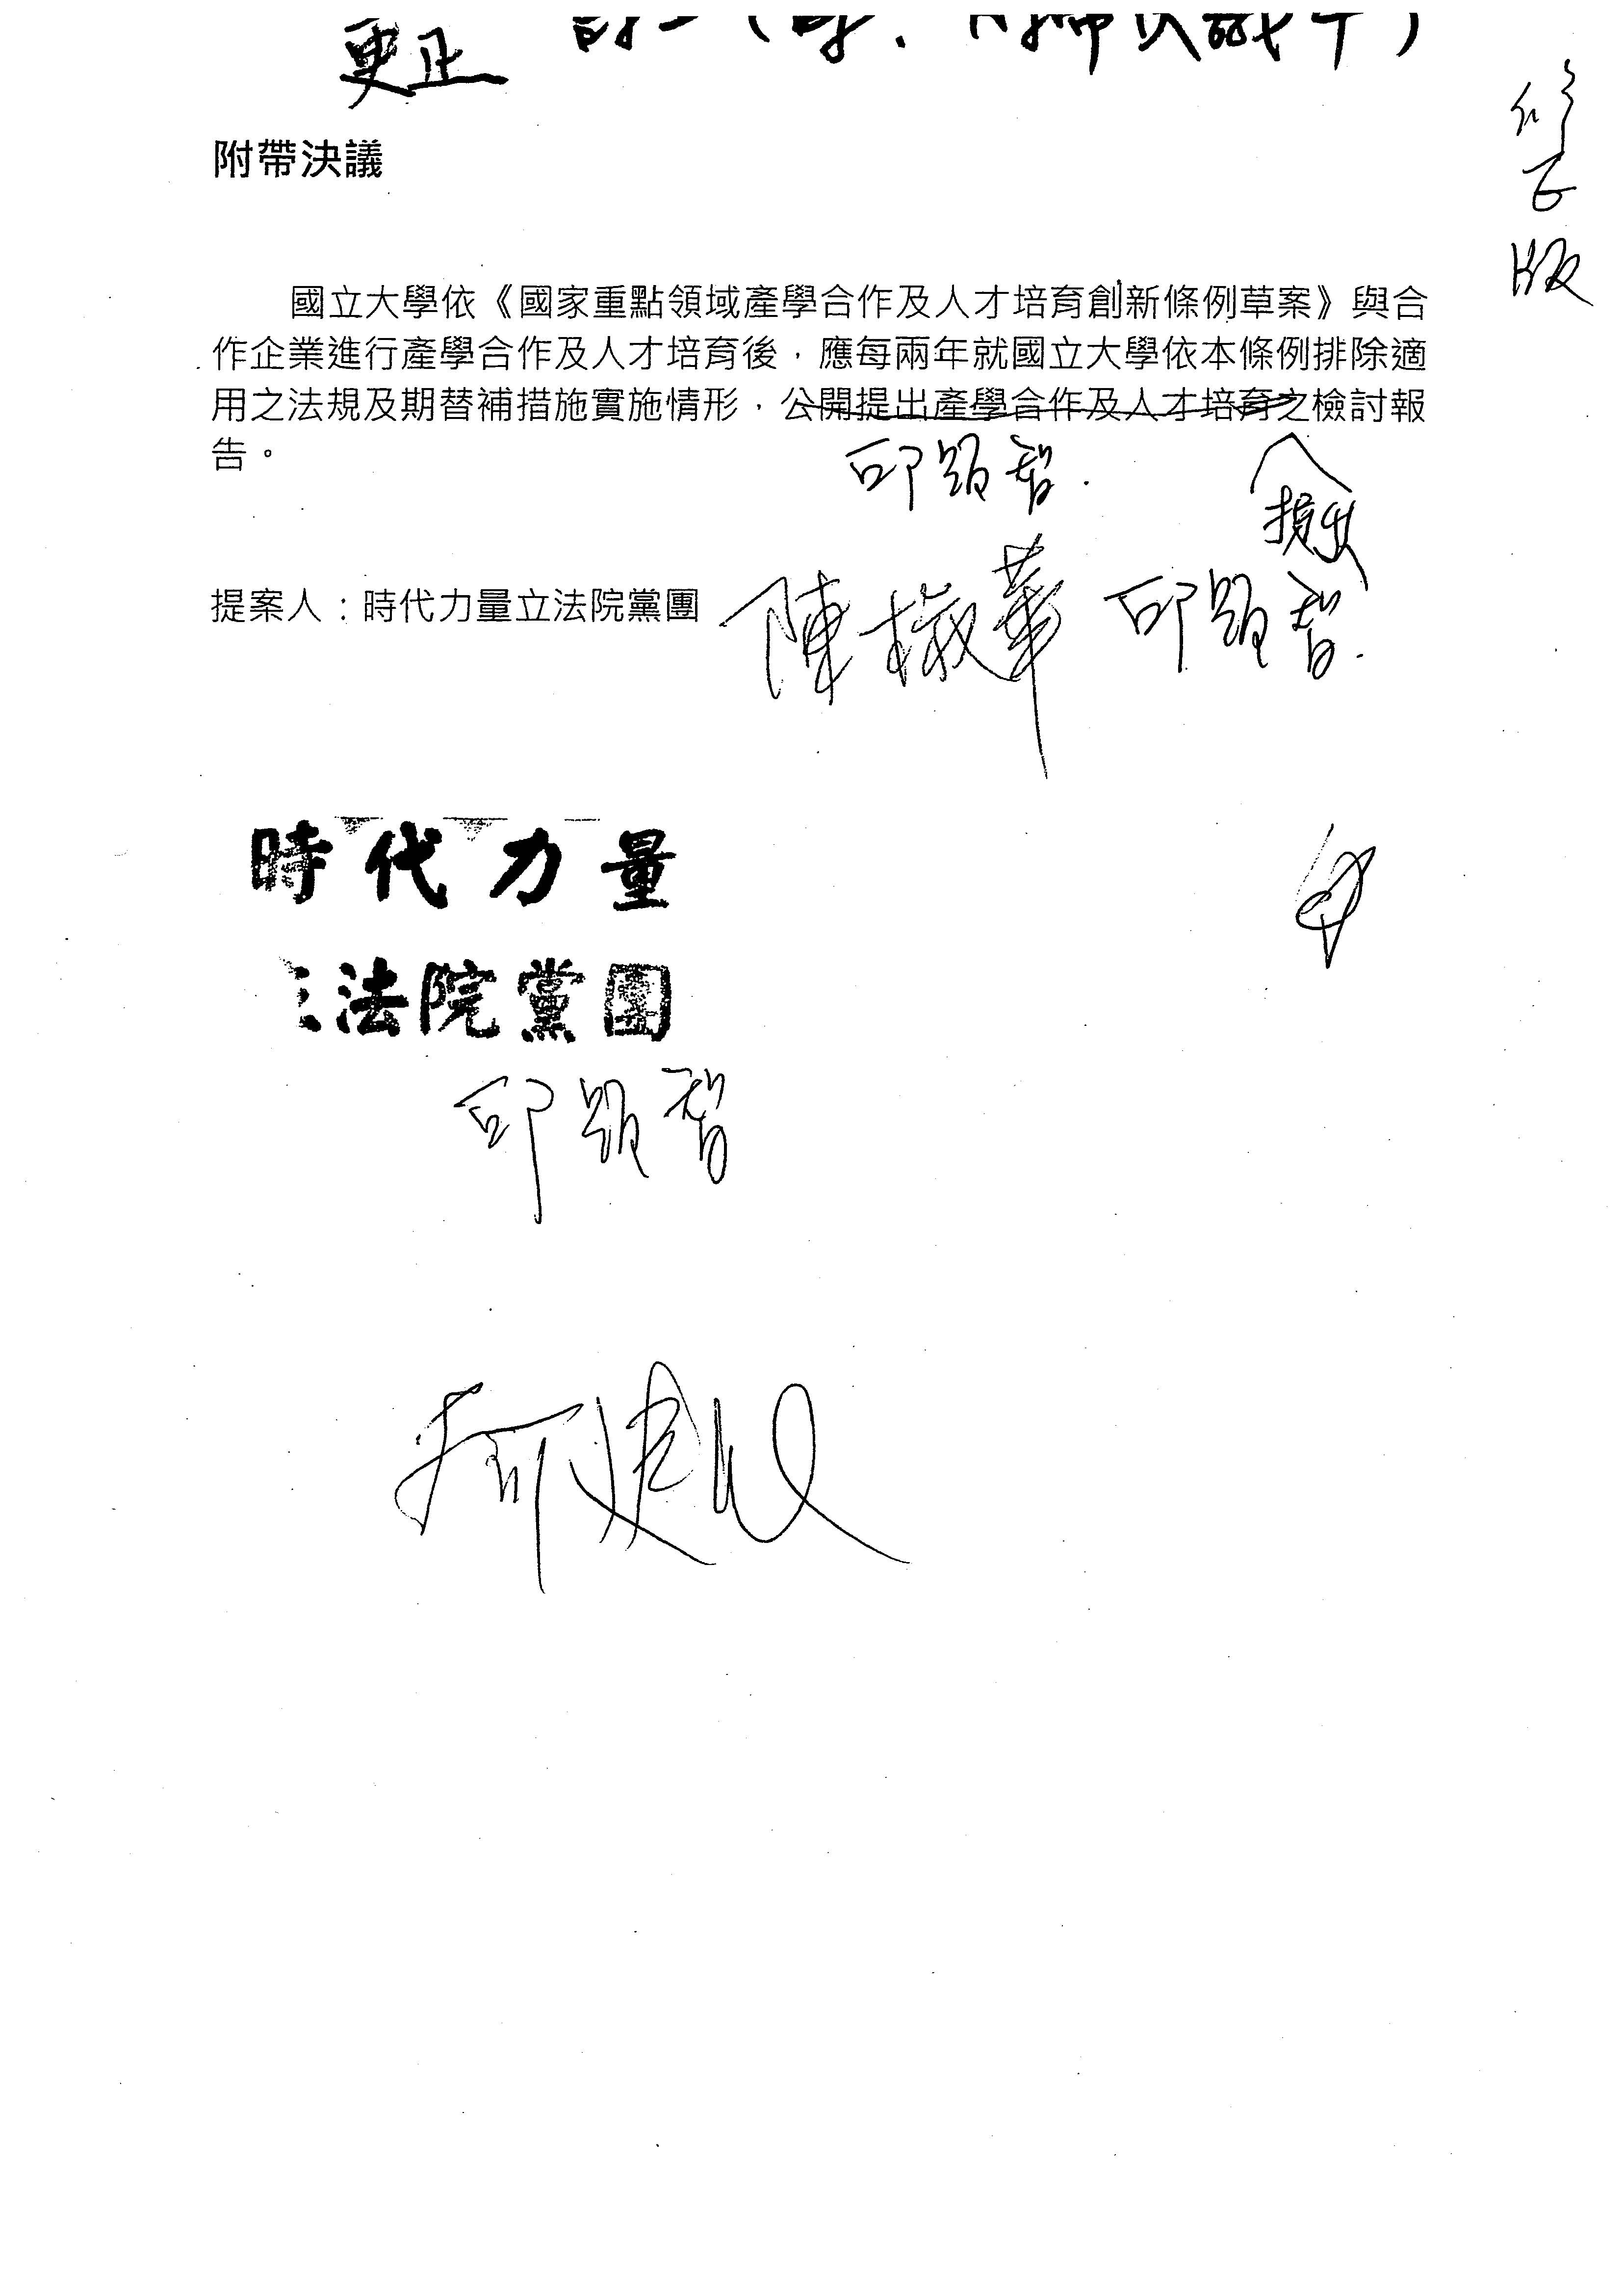 更正
修正版
附帶決議
國立大學依《國家重點領域產學合作及人才培育創新條例草案》與合
作企業進行產學合作及人才培育後，應每兩年就國立大學依本條例排除適
用之法規及期替補措施實施情形，公開提出產學合作及人才培育之檢討報
告。
邱顯智
提出
提案人：時代力量立法院黨團 陳椒華 邱顯智
時代力量
法院黨團
邱顯智
柯建銘